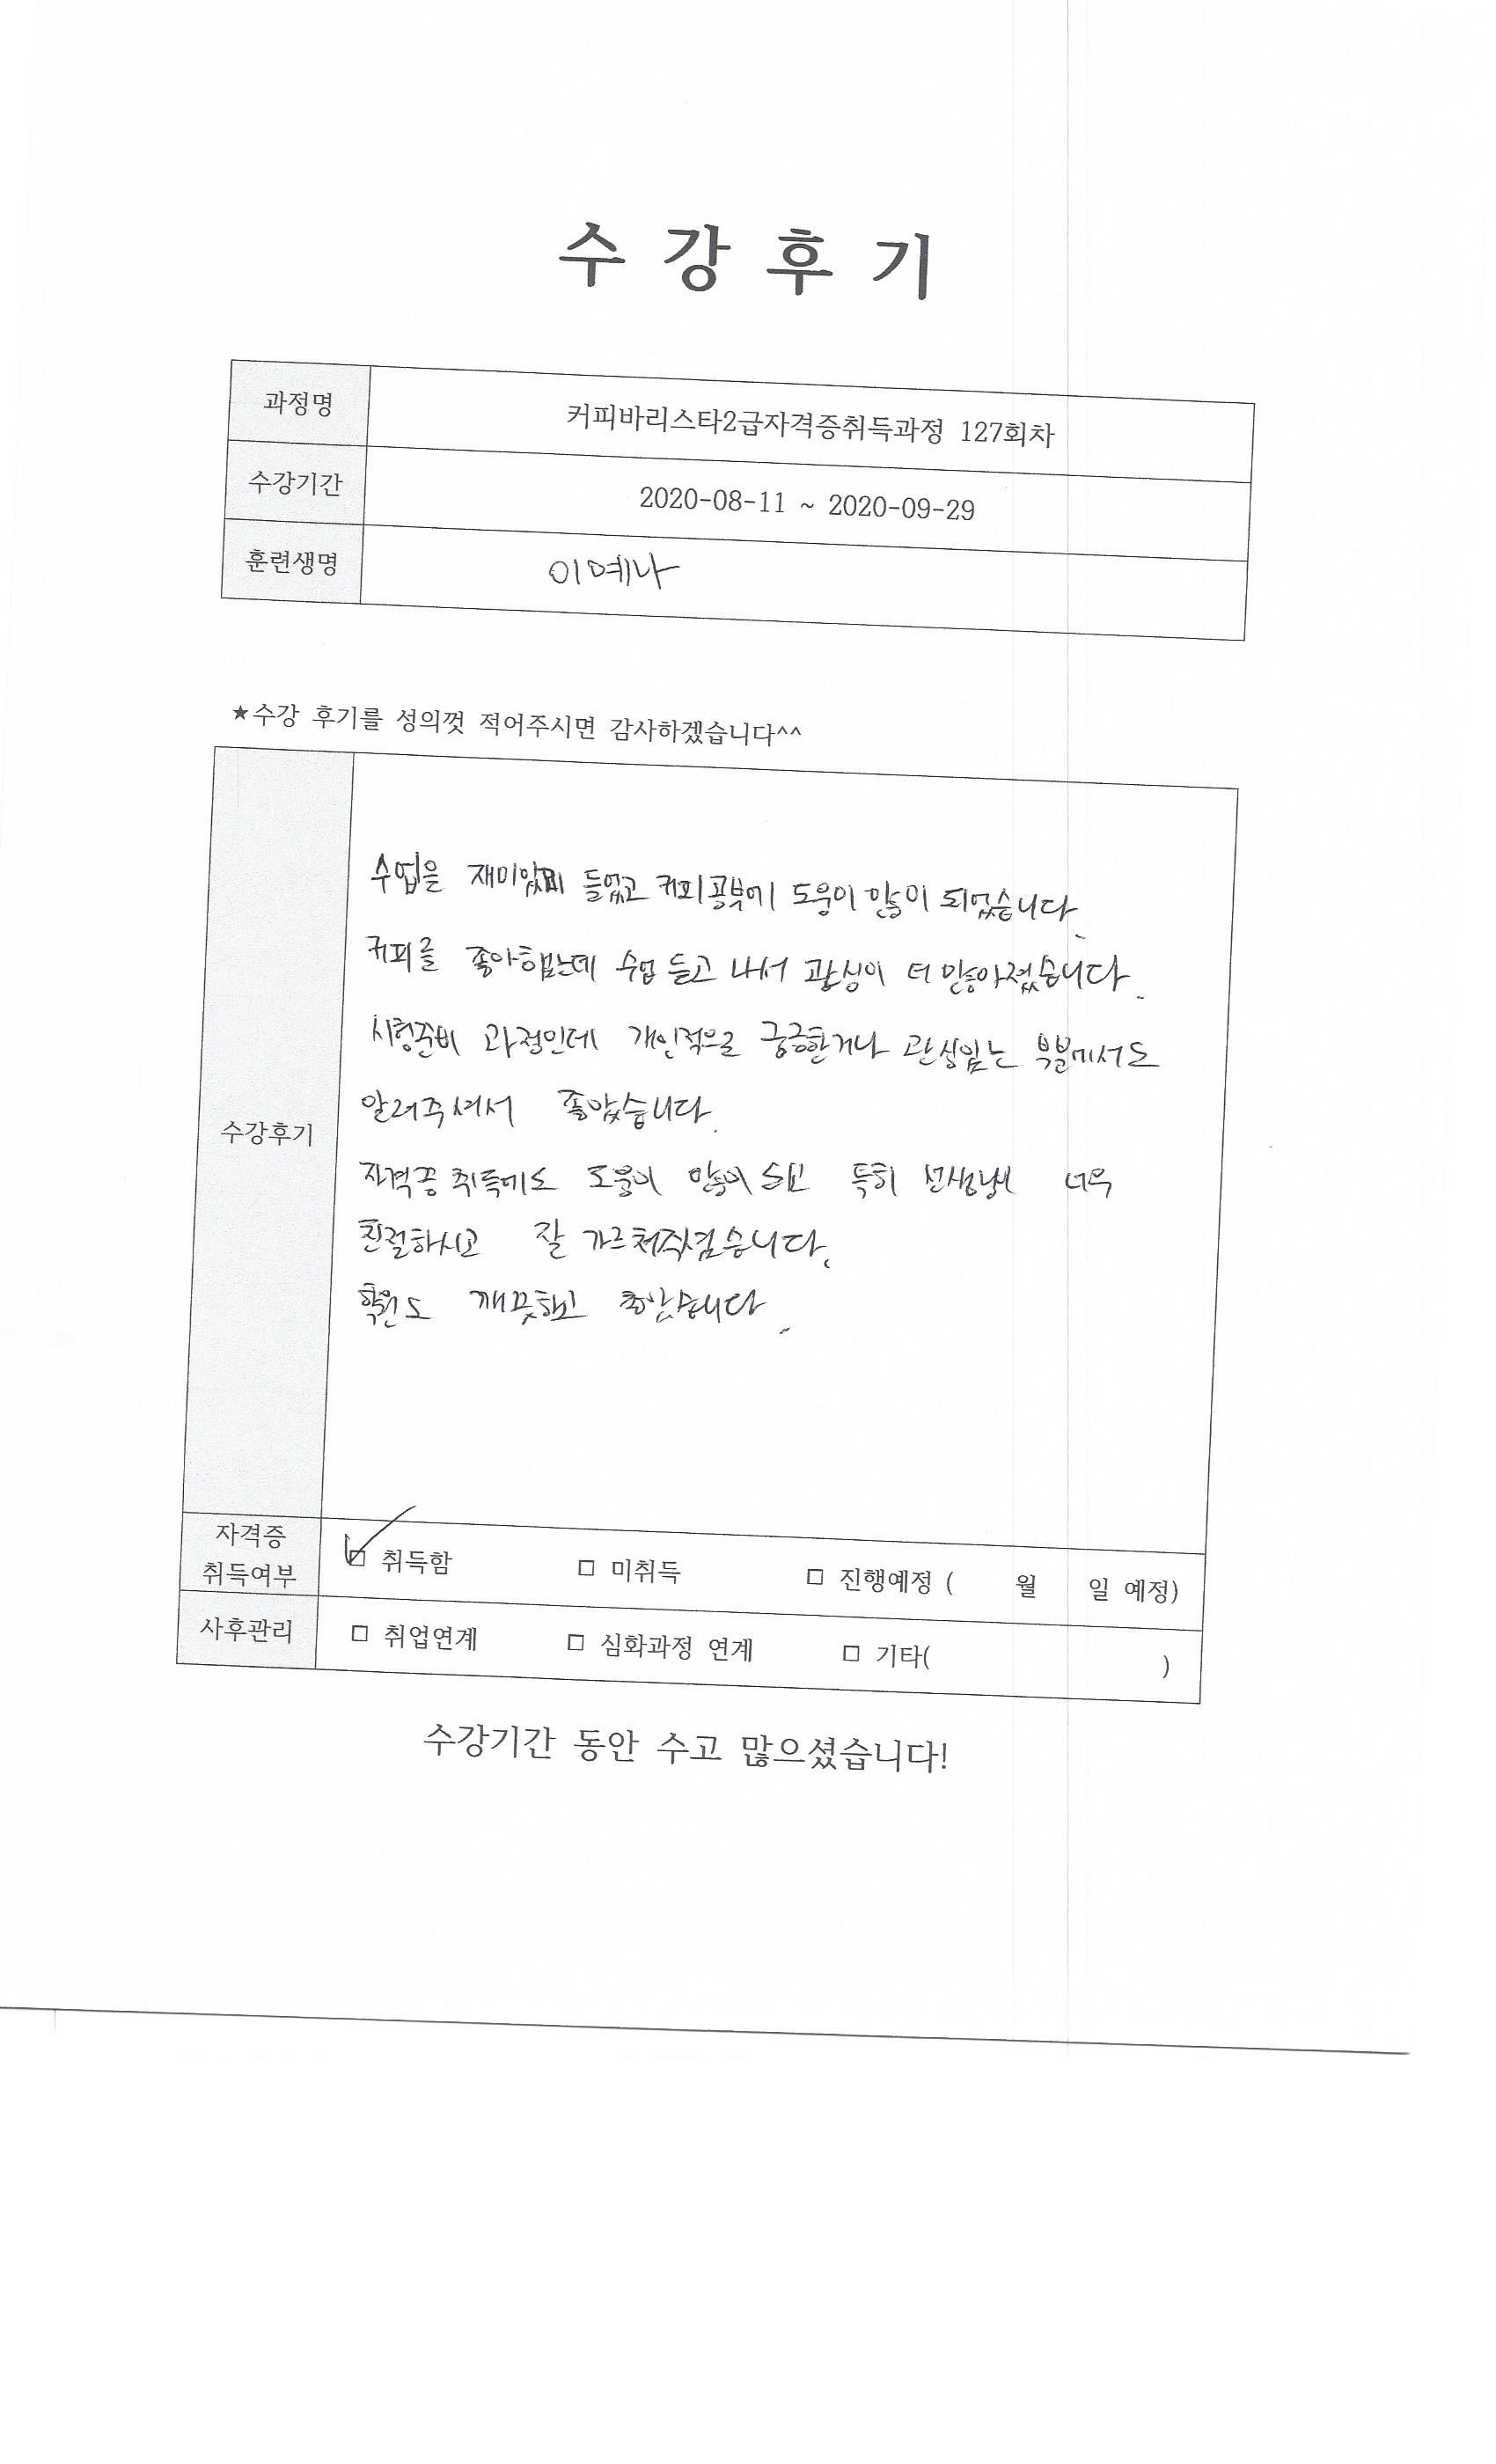 수 강 후 기
과정명 커피바리스타2급자격증취득과정 127회차
수강기간 2020-08-11 ~ 2020-09-29
훈련생명 이예나
★수강 후기를 성의껏 적어주시면 감사하겠습니다^^
수강후기
수업을 재미있게 들었고 커피공부에 도움이 많이 되었습니다.
커피를 좋아했는데 수업 듣고 나서 관심이 더 많아졌습니다.
시험준비 과정인데 개인적으로 궁금한거나 관심있는 부분에서도
알려주셔서 좋았습니다.
자격증 취득에도 도움이 많이 되고 특히 선생님이 너무
친절하시고 잘 가르쳐주셨습니다.
학원도 깨끗하고 좋았습니다.
자격증
취득여부 ☑ 취득함 □ 미취득 □ 진행예정 ( 월 일 예정)
사후관리 □ 취업연계 □ 심화과정 연계 □ 기타( )
수강기간 동안 수고 많으셨습니다!